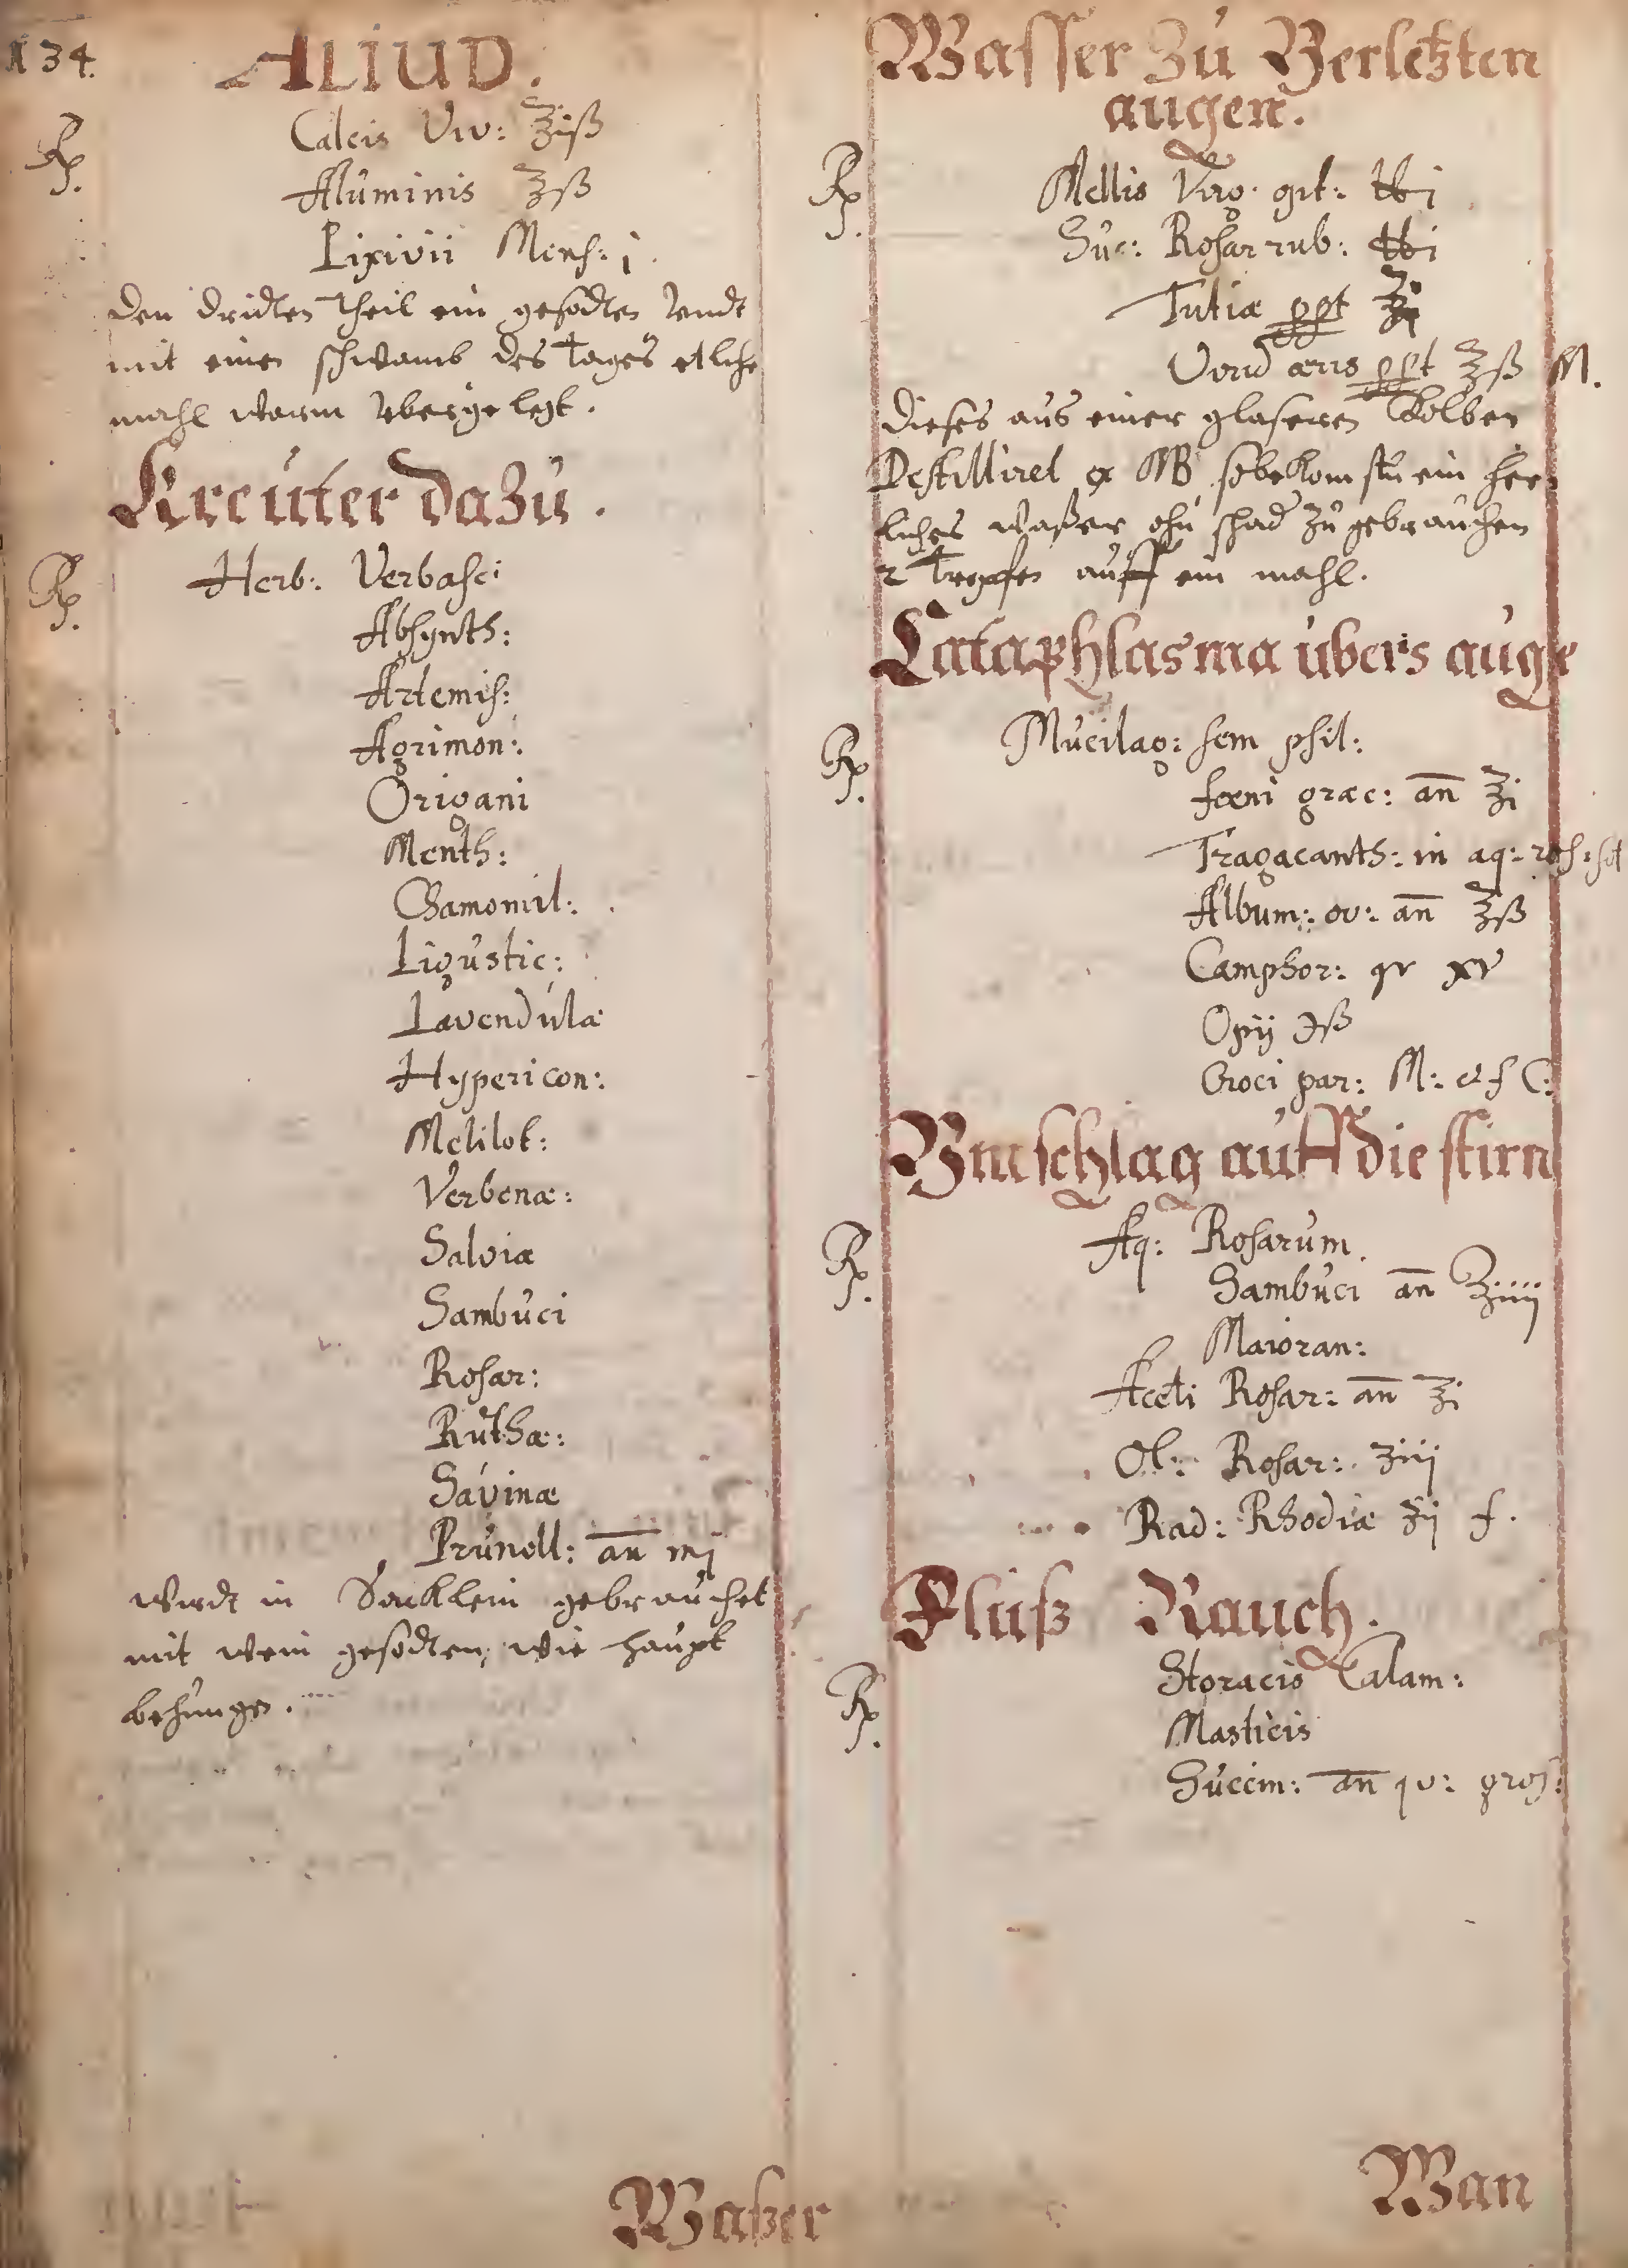 134.
ALIUD.
Rp. Calcis Viv: ℥iß
Aluminis ℥ß
Lixivii Mens: j.
den dridten Theil ein gesodten vndt
mit einen schwamb des Tages etliche
mahl warm vbergelegt.
Kreuter dazu.
Rp. Herb: Verbasci
Absynth:
Artemis:
Agrimon:
Origani
Menth:
Chamomil:
Ligustic:
Lavendulæ
Hypericon:
Melilot:
Verbenæ:
Salviæ
Sambuci
Rosar:
Ruthæ:
Savinæ
Prunell: an̄ mj
wirdt in Sacklein gebrauchet
mit wein gesodten, wie haupt
behunge.
Waßer
Wasser zu Verletzten
augen.
Rp. Mellis Virg. opt: ℔j
Suc: Rosar rub: ℔j
Tutiæ ppt ℥i
Virid æris ppt ℥ß M.
dieses aus einer glaseren Kolben
Destilliret ex MB so bekomstu ein herr
liches waßer ohn schad zu gebrauchen
2 Tropfen auff ein mahl.
Cataphlasma ubers auge
Rp. Mucilag: sem psil:
fœni græc: an̄ ℥i
Tragacanth: in aq: ros: sol
Album: ov: an̄ ℥ß
Camphor: gr xv
Opij ℈ß
Croci par: M: et f C:
Vmschlag auff die stirn
Rp. Aq: Rosarum.
Sambuci an̄ ℥iiij
Maioran:
Aceti Rosar: an̄ ℥i
Ol: Rosar: ʒiij
Rad: Rhodiæ ʒij f.
Fluß Rauch.
Rp. Storacis Calam:
Masticis
Succin: an̄ qv: gros:
Man